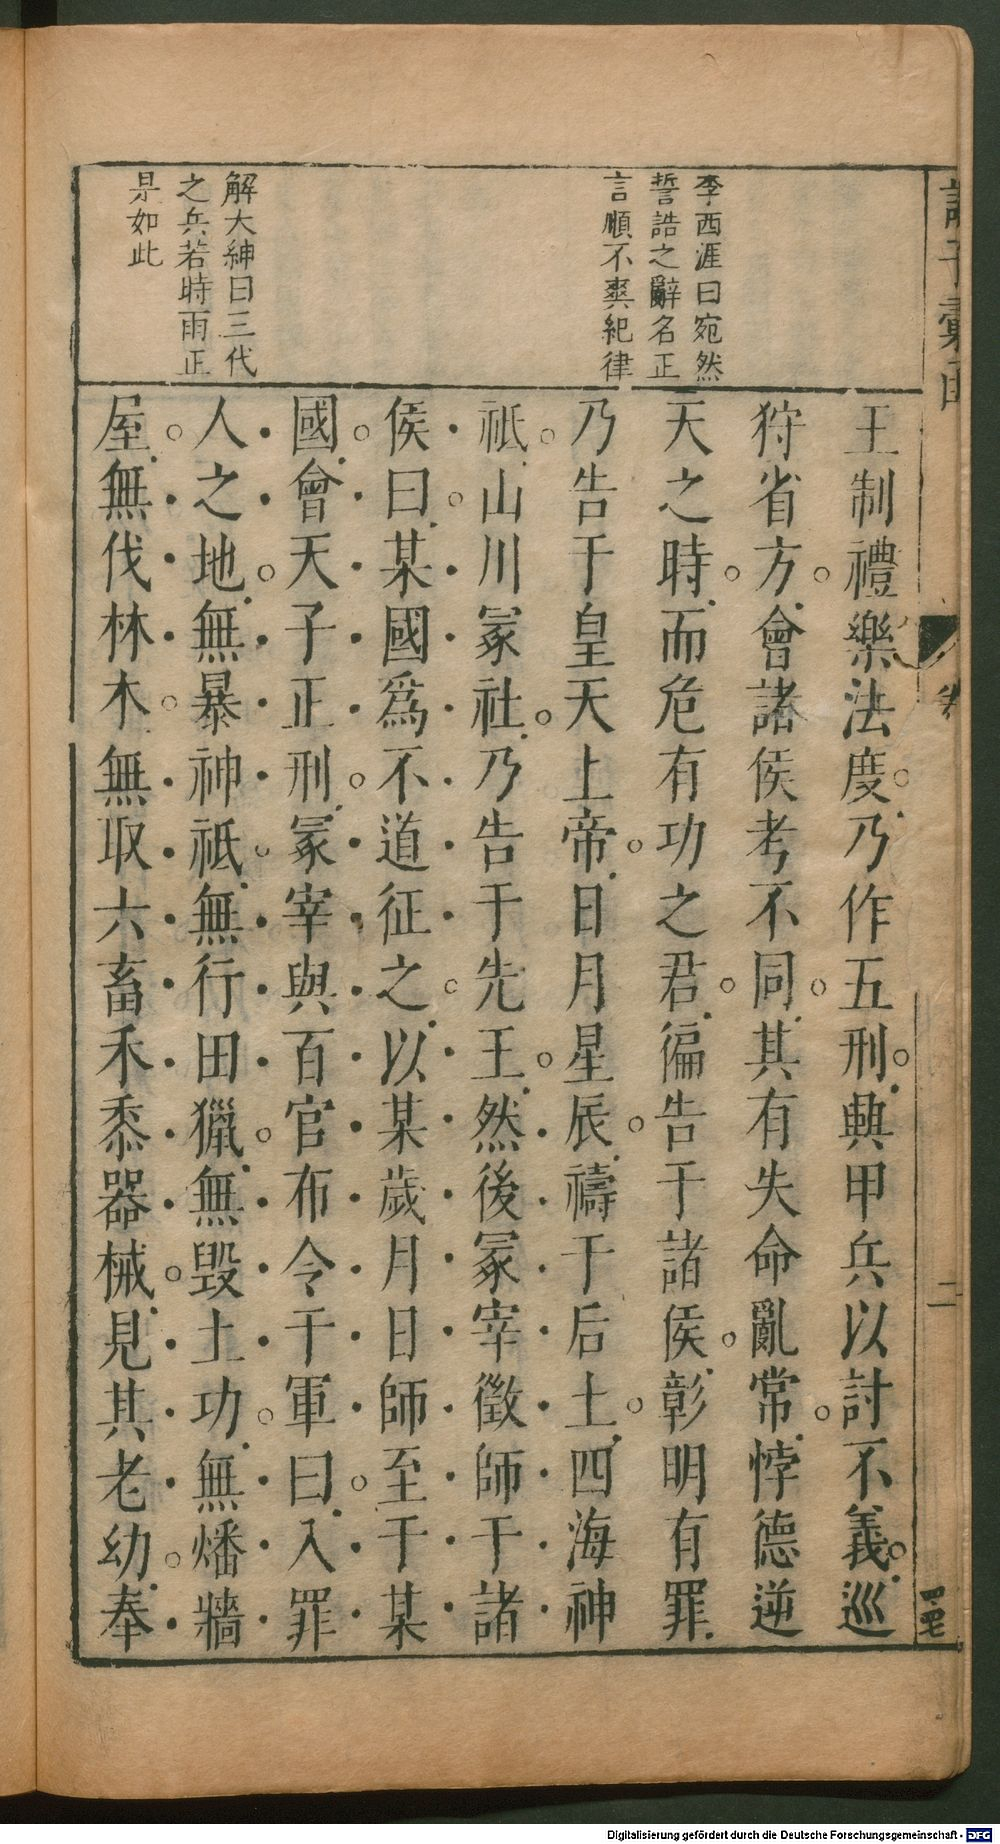 李西涯曰宛然
誓誥之辭名正
言順不爽紀律
解大紳曰三代
之兵若時雨正
是如此
王制禮樂法度乃作五刑興甲兵以討不義巡
狩省方會諸侯考不同其有失命亂常悖德逆
天之時而危有功之君徧告于諸侯彰明有罪
乃告于皇天上帝日月星辰禱于后土四海神
祇山川冢社乃告于先王然後冢宰徵師于諸
侯曰某國爲不道征之以某歲月日師至于某
國會天子正刑冢宰與百官布令于軍曰入罪
人之地無暴神祇無行田獵無毀土功無燔牆
屋無伐林木無取六畜禾黍器械見其老幼奉
二
Digitalisierung gefördert durch die Deutsche Forschungsgemeinschaft - DFG